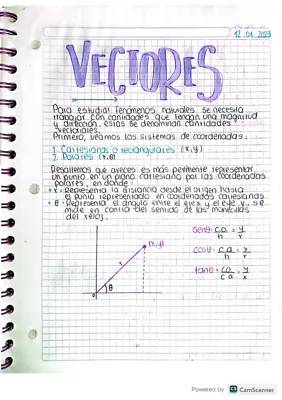 12 04 2023
VECTORES
Para estudiar fenómenos naturales se necesita
trabajar con cantidades que tengan una magnitud
y dirección, estas se denominan cantidades
vectoriales.
Primero, veamos los sistemas de coordenadas:
1. Cartesianas o rectangulares (x,y)
2. Polares (r,θ)
Resaltemos que aveces es más pertinente representar
un punto en un plano cartesiano por las coordenadas
polares, en donde:
• r: Representa la distancia desde el origen hasta
el punto representado en coordenadas cartesianas
• θ: Representa el ángulo entre el eje x y el eje y, se
mide en contra del sentido de las manecillas
del reloj.
senθ = co/h = y/r
(x,y)
cosθ = ca/h = x/r
r
tanθ = co/ca = y/x
θ
0
Powered by CS CamScanner